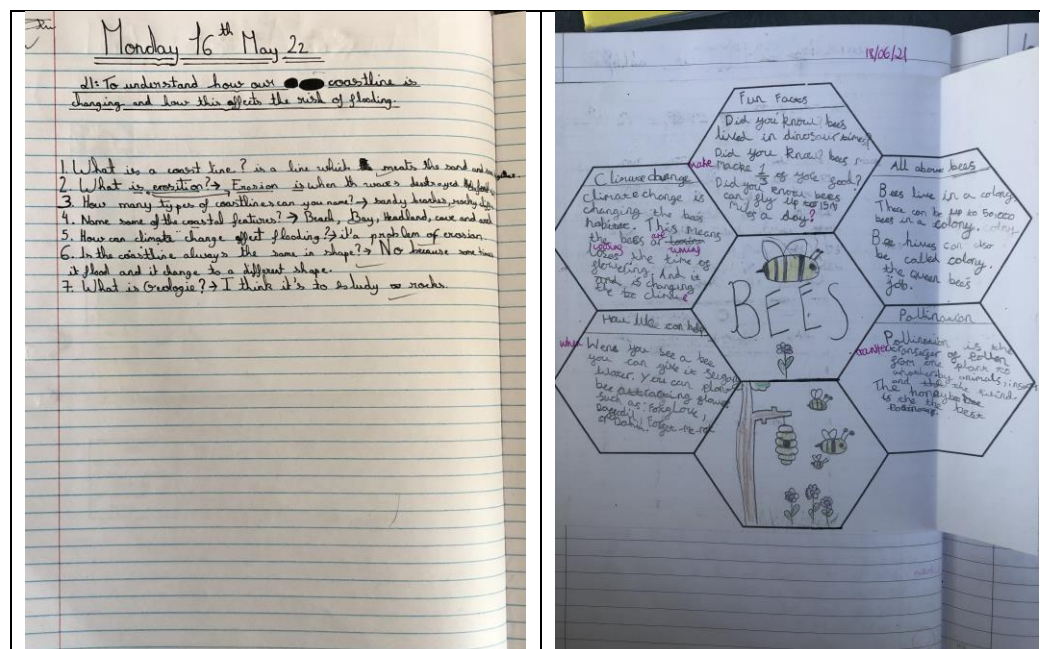 Monday 16th May 22
LI: To understand how our coastline is
changing and how this affects the risk of flooding.
1. What is a coast line? is a line which meets the sand and
2. What is erosition? → Erosion is when th waves destroyed
3. How many types of coastlines can you name? → sandy beaches, rocky
4. Name some of the coastal features? → Beach, Bay, Headland, cave and
5. How can climate change effect flooding? → it's a problem of erosion.
6. Is the coastline always the same in shape? → No because some times
it flood and it change to a different shape.
7. What is Geologie? → I think it's to study rocks.
18/06/21
Fun Faces
Did you know bees
lived in dinosaur times?
Did you know bees
make
macke 1/3 of your food?
Did you know bees
can fly up to 15
miles a day?
Climate change
climate change is
changing the bees
habitat. This means
the bees
loses the time of
flowering. And is
and is changing
the climate
All about bees
Bees live in a colony.
There can be up to 50,000
bees in a colony.
Bee hives can also
be called colony.
the queen bee's
job.
BEES
How We can help
when
Wene you see a bee
you can give it sugar
water. You can plant
bee attracting flowers
such as: Foxglove,
Daffodil, Forget-me-not
or Dahlia.
Pollination
Pollination is the
transfer
of pollen
from one plant to
another by animals, insects
and the wind.
The honeybee
is the the best